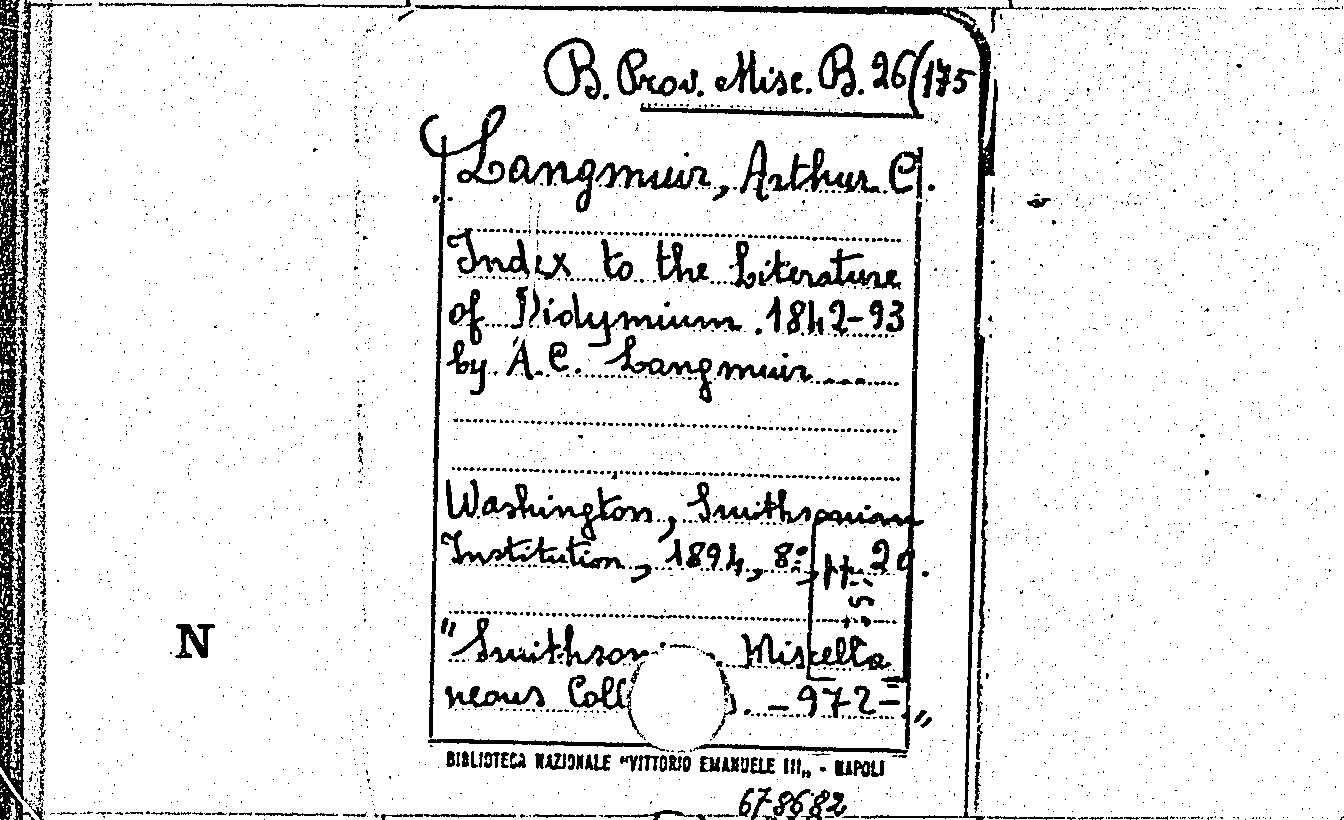 B. Prov. Misc. B. 26(175
Langmuir, Arthur C.
Index to the Literature
of Didymium. 1842-93
by A. C. Langmuir
Washington, Smithsonian
Institution, 1894, 8º, pp. 20.
"Smithson Miscella
neous Coll . - 972 - "
N
BIBLIOTECA NAZIONALE "VITTORIO EMANUELE III„ - NAPOLI
678682